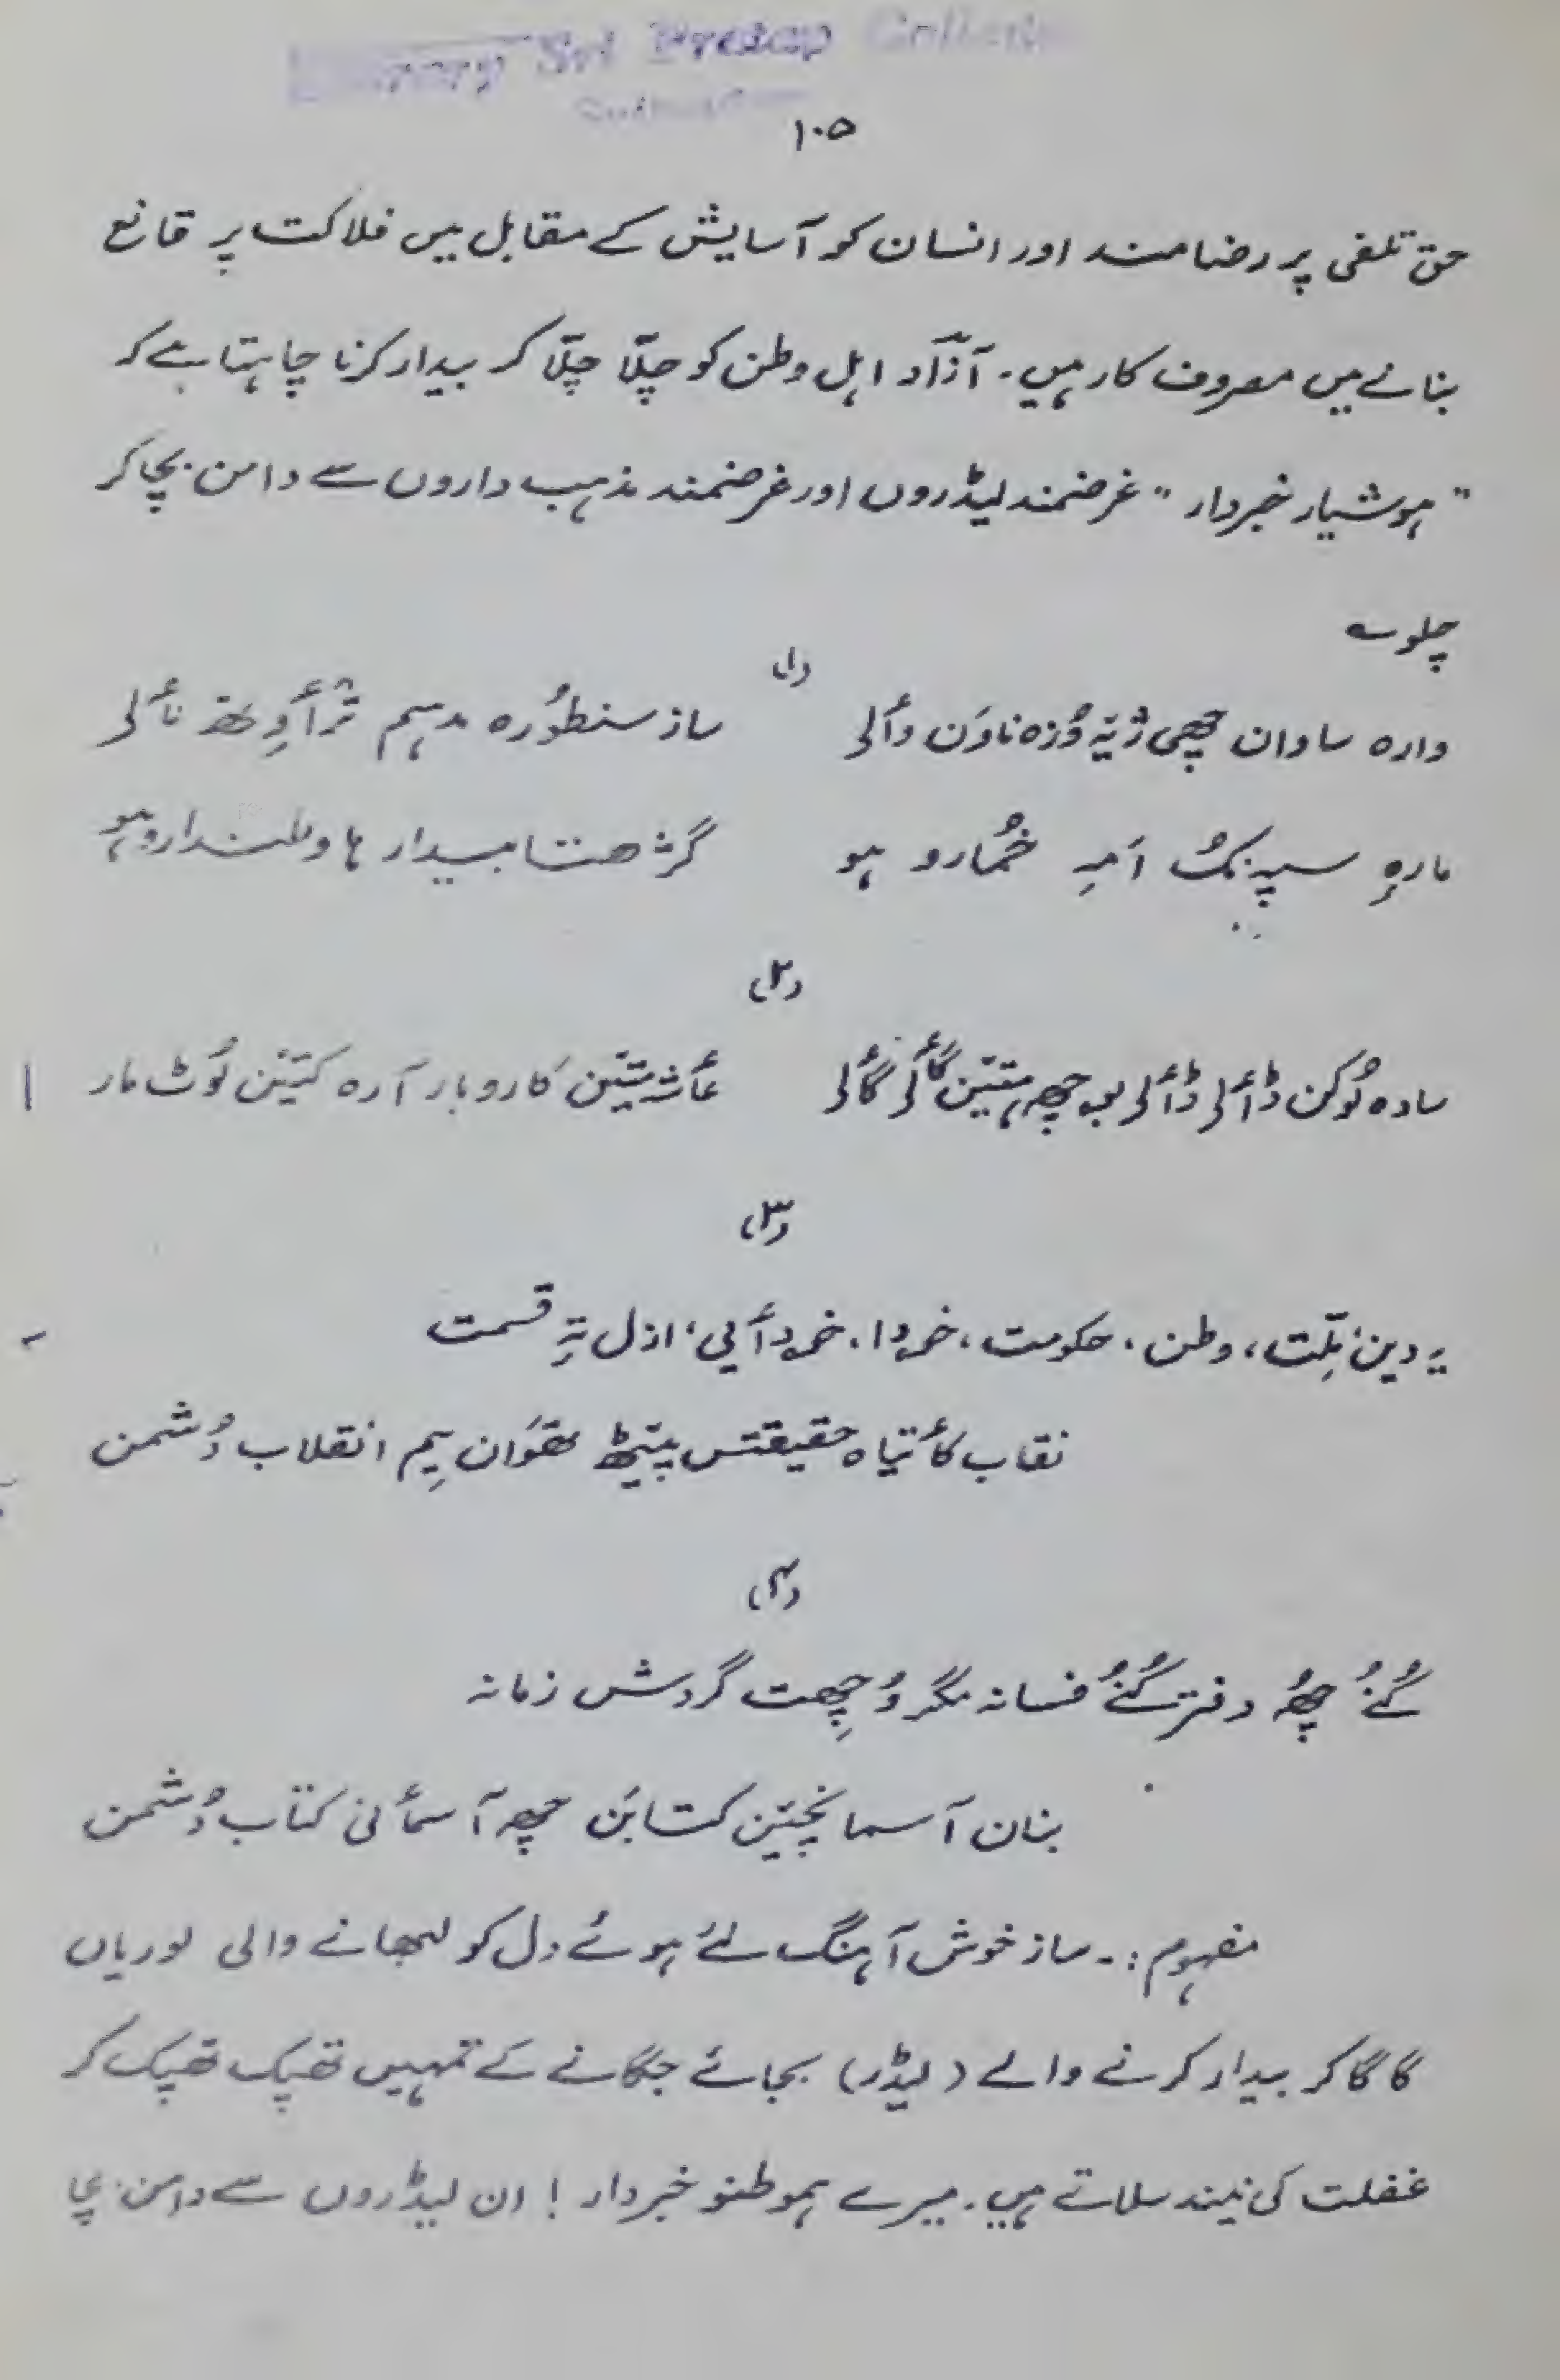 Library Sri Pratap College
۱۰۵
حق تلفی پر رضامند اور انسان کو آسایش کے مقابل میں فلاکت پر قانع
بنانے میں مصروف کار ہیں۔ آزاد اہل وطن کو چلّا چلّا کر بیدار کرنا چاہتا ہے کہ
"ہوشیار خبردار" غرضمند لیڈروں اور غرضمند مذہب داروں سے دامن بچا کر
چلو ؎
(۱)
وارہ ساوان چھی ژیہ وُزہ ناوَن وألی ساز سنطوُرہ مدہم ترٲوِتھ نألی
مارہِ سپزکُ اَمہِ خُمارو ہو گژھتا بیدار ہا وطندارو ہو
(۲)
سادہ لُوکن ڈألی ڈألی بوچھہ ہتیَن گألی گألی عأشیتَین کاروبار آرہ کتیَن لوُٹ مار
(۳)
یہ دین، مِلّت، وطن، حکومت، خودا، خودأیی، ازل تہِ قسمت
نقاب کأتیاہ حقیقتس پیٹھ تھوَان یِم انقلاب دُشمن
(۴)
کُنُے چھُہ دفتر کُنُے فسانہ مگر وُچھِت گردش زمانہ
بنان آسمانچیَن کتابَن چھہ آسمأنی کتاب دُشمن
مفہوم:۔ ساز خوش آہنگ لئے ہوئے دل کو لبھانے والی لوریاں
گا گا کر بیدار کرنے والے (لیڈر) بجائے جگانے کے تمہیں تھپک تھپک کر
غفلت کی نیند سلاتے ہیں۔ میرے ہموطنو خبردار! ان لیڈروں سے دامن بچا